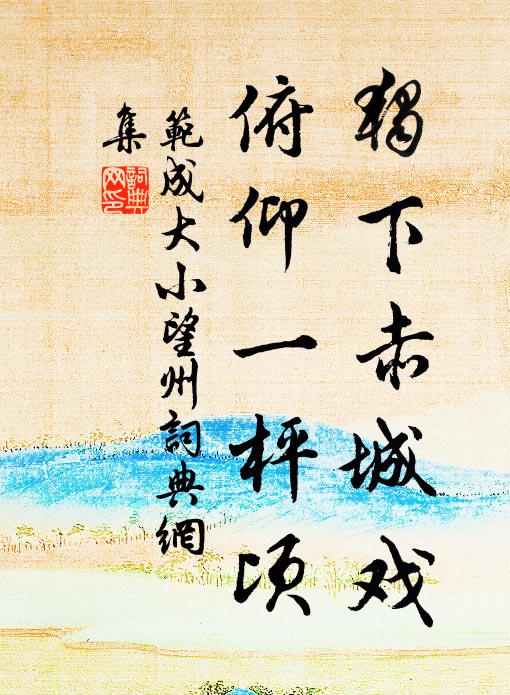 獨下赤城戏
俯仰一枰顷
範成大小望州詞典網
集
詞典
网印